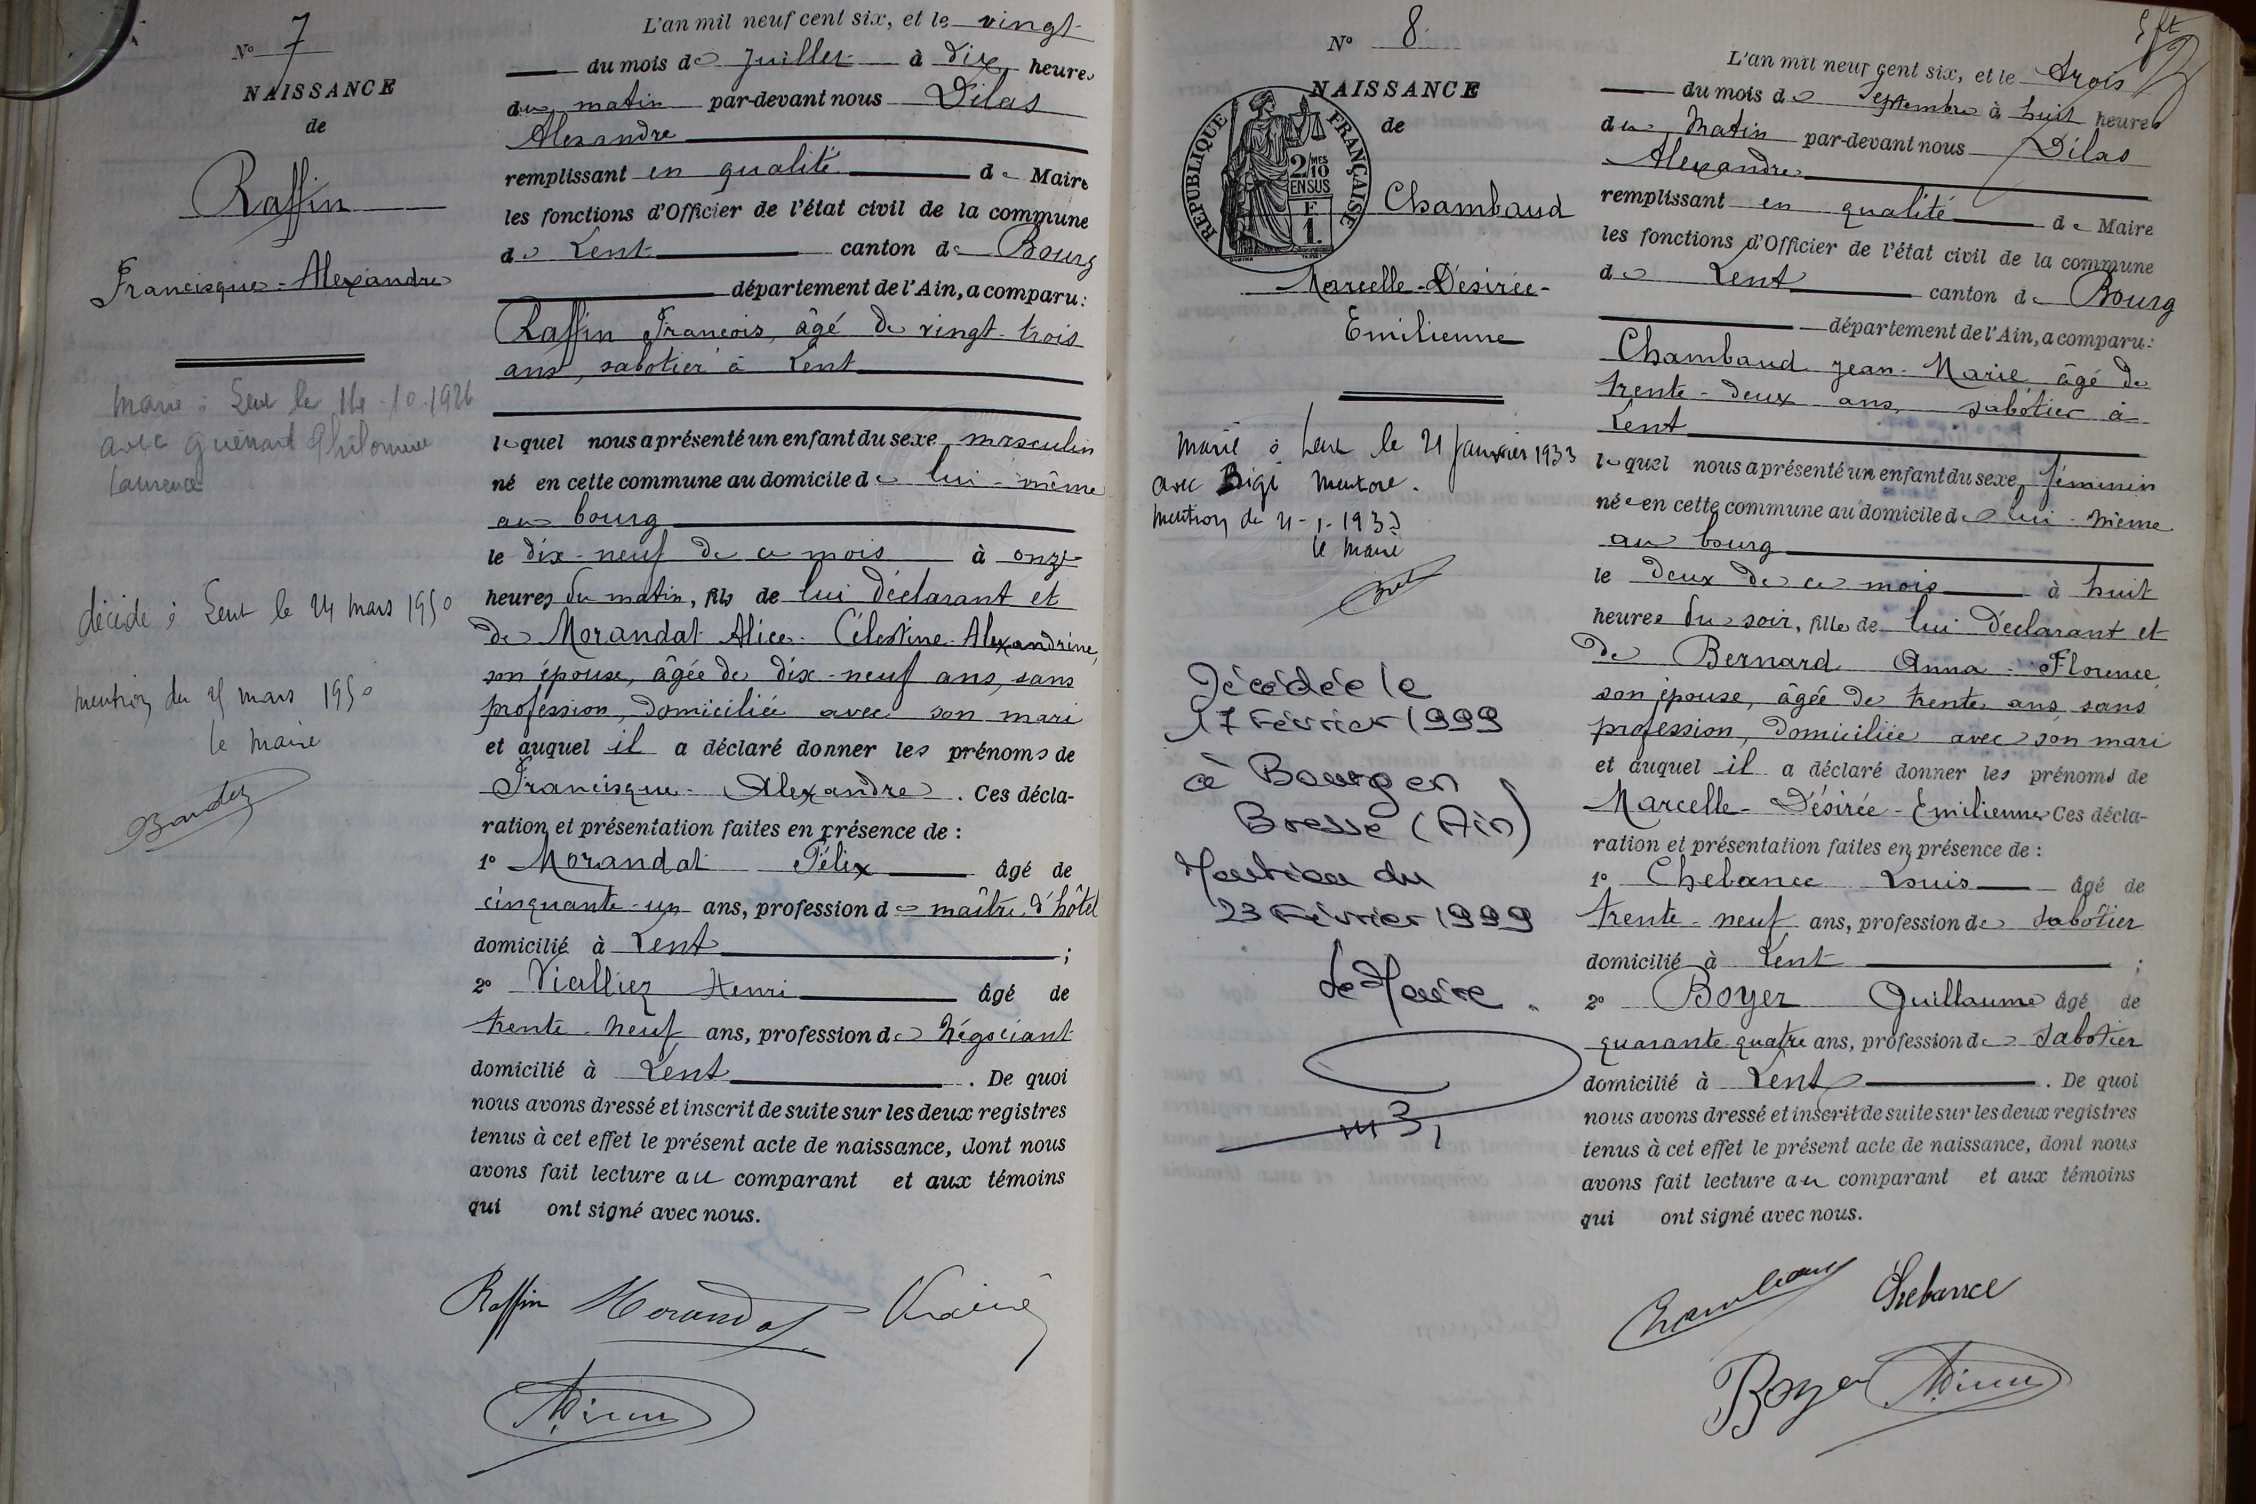 N° 7
NAISSANCE
de
Raffin
Francisque-Alexandre
marié à Lent le 14-10-1926
avec Guénard Philomène
Laurence
décédé à Lent le 24 mars 1950
mention du 25 mars 1950
le maire
L'an mil neuf cent six, et le vingt
du mois de Juillet à dix heures
du matin par-devant nous Dilas
Alexandre
remplissant en qualité de Maire
les fonctions d'Officier de l'état civil de la commune
de Lent canton de Bourg
département de l'Ain, a comparu:
Raffin François, âgé de vingt-trois
ans, sabotier à Lent
lequel nous a présenté un enfant du sexe masculin
né en cette commune au domicile de lui-même
au bourg
le dix-neuf de ce mois à onze
heures du matin, fils de lui déclarant et
de Morandat Alice-Célestine-Alexandrine,
son épouse, âgée de dix-neuf ans, sans
profession, domiciliée avec son mari
et auquel il a déclaré donner les prénoms de
Francisque-Alexandre. Ces décla-
ration et présentation faites en présence de :
1° Morandat Félix âgé de
cinquante-un ans, profession de maître d'hôtel
domicilié à Lent ;
2° Vialliez Henri âgé de
trente-neuf ans, profession de Négociant
domicilié à Lent . De quoi
nous avons dressé et inscrit de suite sur les deux registres
tenus à cet effet le présent acte de naissance, dont nous
avons fait lecture au comparant et aux témoins
qui ont signé avec nous.
Raffin Morandat
N° 8
NAISSANCE
de
RÉPUBLIQUE FRANÇAISE
2/10 MES
EN SUS
F
1.
Chambaud
Marcelle-Désirée-
Emilienne
marié à Lent le 21 janvier 1933
avec Bigi
mention du 21-1-1933
le maire
Décédée le
17 Février 1999
à Bourg en
Bresse (Ain)
Mention du
23 Février 1999
Le Maire.
L'an mil neuf cent six, et le trois
du mois de Septembre à huit heures
du Matin par-devant nous Dilas
Alexandre
remplissant en qualité de Maire
les fonctions d'Officier de l'état civil de la commune
de Lent canton de Bourg
département de l'Ain, a comparu:
Chambaud Jean-Marie, âgé de
trente-deux ans, sabotier à
Lent
lequel nous a présenté un enfant du sexe féminin
née en cette commune au domicile de lui-même
au bourg
le deux de ce mois à huit
heures du soir, fille de lui déclarant et
de Bernard Anna-Florence,
son épouse, âgée de trente ans, sans
profession, domiciliée avec son mari
et auquel il a déclaré donner les prénoms de
Marcelle-Désirée-Emilienne Ces décla-
ration et présentation faites en présence de :
1° Chebance Louis âgé de
trente-neuf ans, profession de sabotier
domicilié à Lent ;
2° Boyer Guillaume âgé de
quarante-quatre ans, profession de sabotier
domicilié à Lent . De quoi
nous avons dressé et inscrit de suite sur les deux registres
tenus à cet effet le présent acte de naissance, dont nous
avons fait lecture au comparant et aux témoins
qui ont signé avec nous.
Chambaud Chebance
Boyer